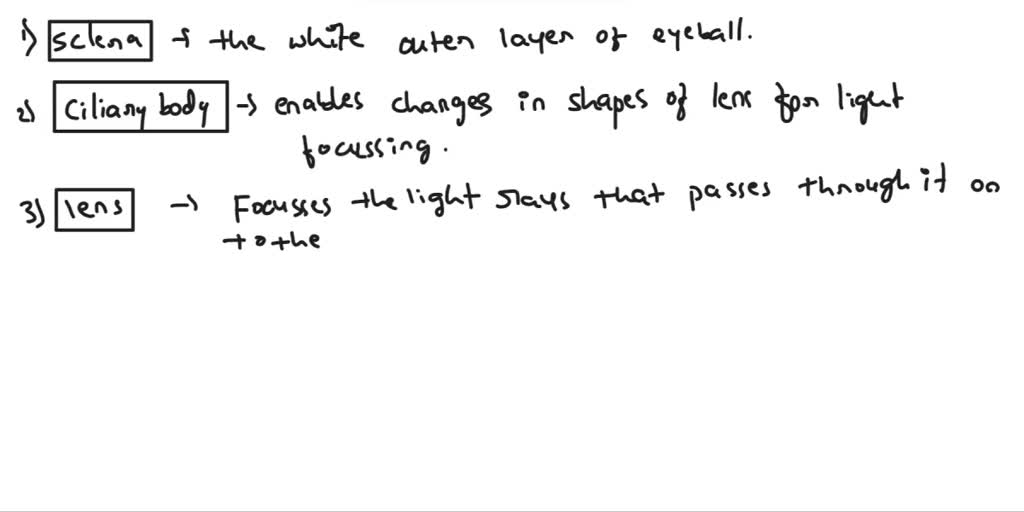 1) sclera → the white outer layer of eyeball.
2) Ciliary body → enables changes in shapes of lens for light
focussing.
3) lens → Focusses the light rays that passes through it on
to the